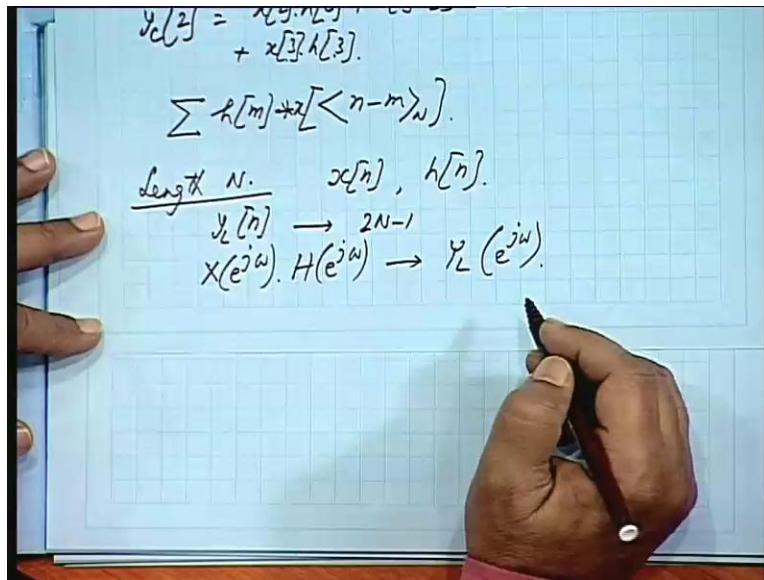 y_c[2] =
+ x[3].h[3].
∑ h[m]*x[<n-m>_N].
Length N. x[n], h[n].
y_L[n] → 2N-1
X(e^{jω}). H(e^{jω}) → Y_L(e^{jω}).